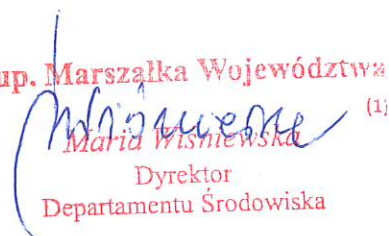 up. Marszałka Województwa
(1)
Maria Wiśniewska
Dyrektor
Departamentu Środowiska